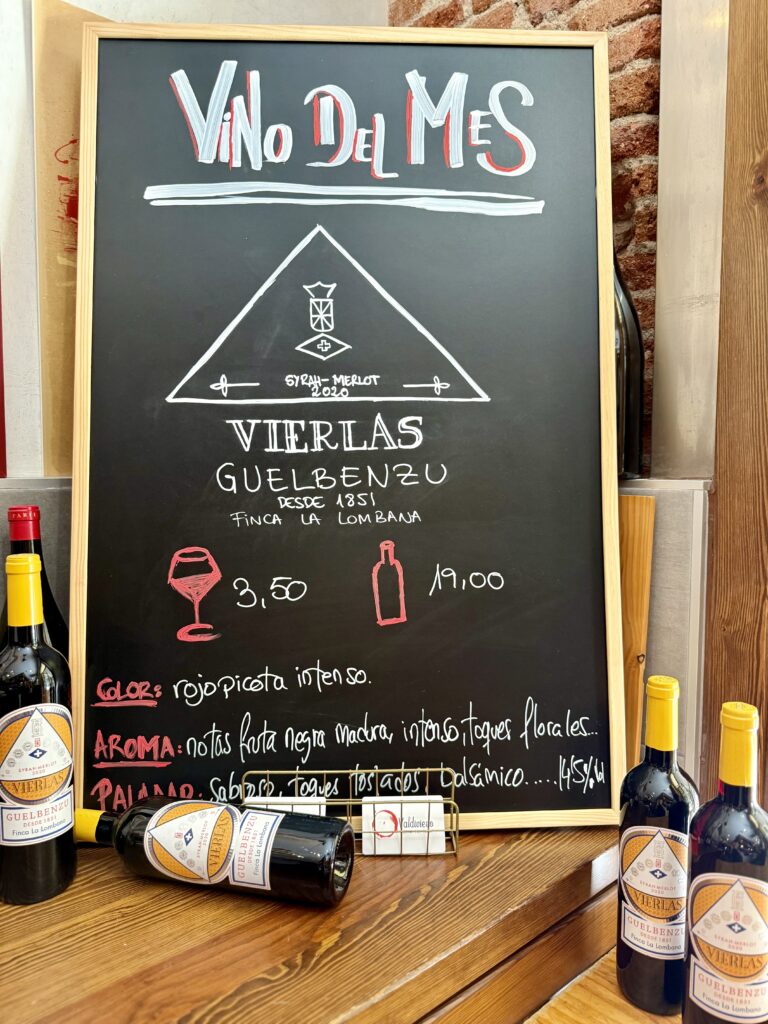 VINO DEL MES
SYRAH-MERLOT
2020
VIERLAS
GUELBENZU
DESDE 1851
FINCA LA LOMBANA
3,50
19,00
COLOR: rojo picota intenso.
AROMA: notas fruta negra madura, intenso, toques florales...
PALADAR: Sabroso, toques tostados, balsámico.....14'5%.vol
SYRAH-MERLOT
2020
VIERLAS
GUELBENZU
DESDE 1851
Finca La Lombana
SYRAH-MERLOT
2020
VIERLAS
GUELBENZU
DESDE 1851
Finca La Lombana
Valdivieso
SYRAH-MERLOT
2020
VIERLAS
GUELBENZU
DESDE 1851
Finca La Lombana
SYRAH-MERLOT
2020
VIERLAS
GUELBENZU
DESDE 1851
Finca La Lombana